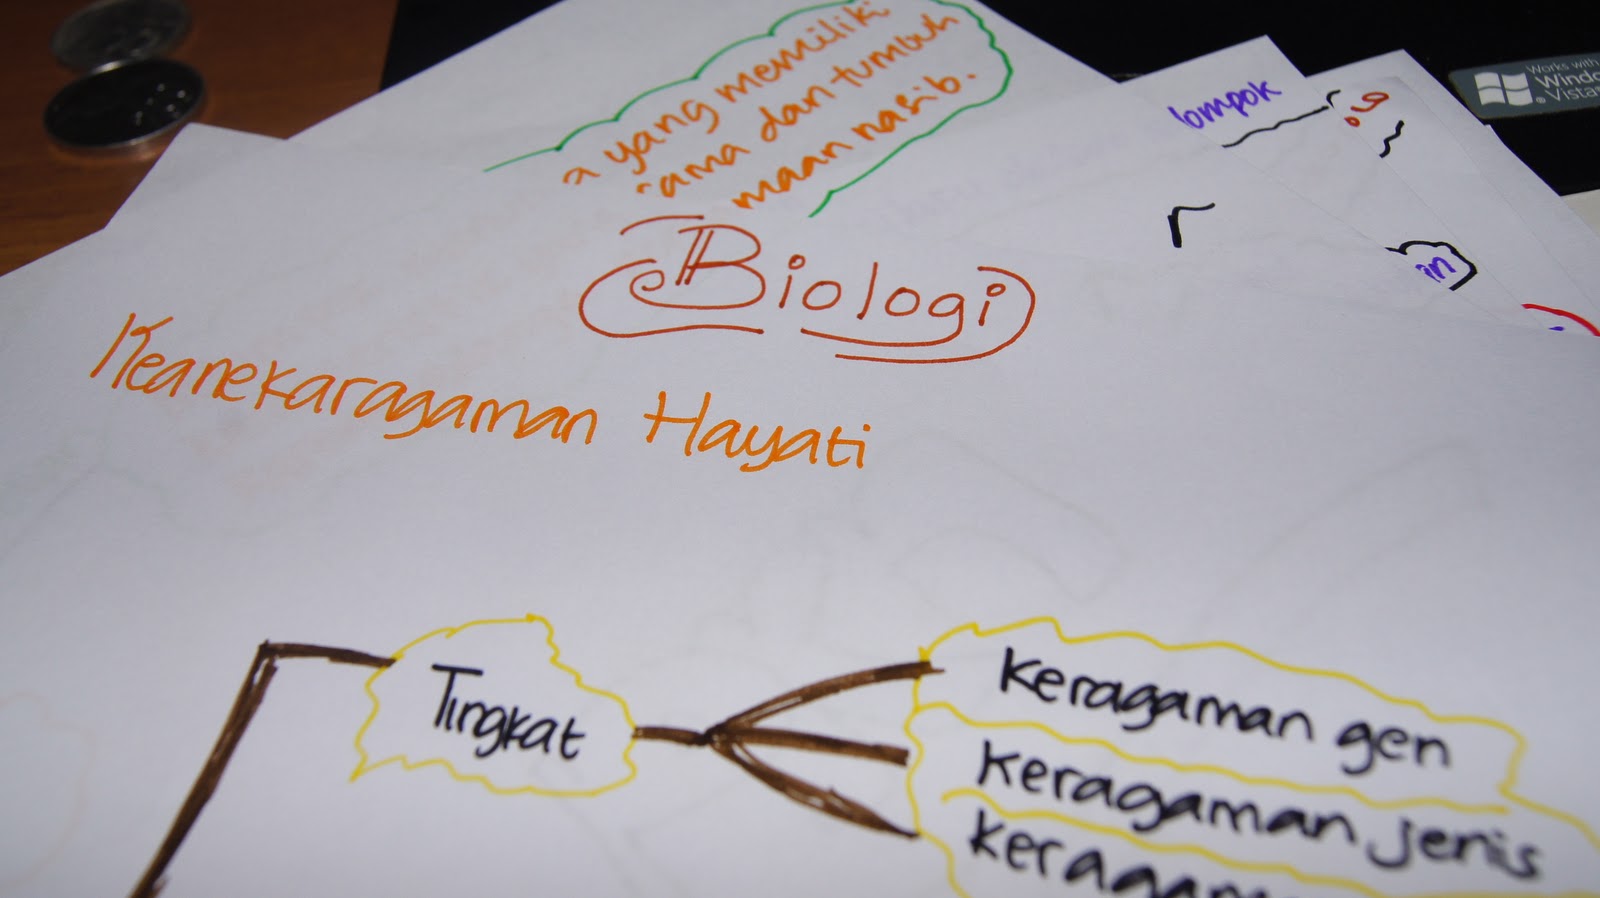 yang memiliki
ama dan tumbuh
maan nasib.
lompok
Works with
Windo
Vista
in
Biologi
Keanekaragaman Hayati
Tingkat
Keragaman gen
Keragaman jenis
Keragam